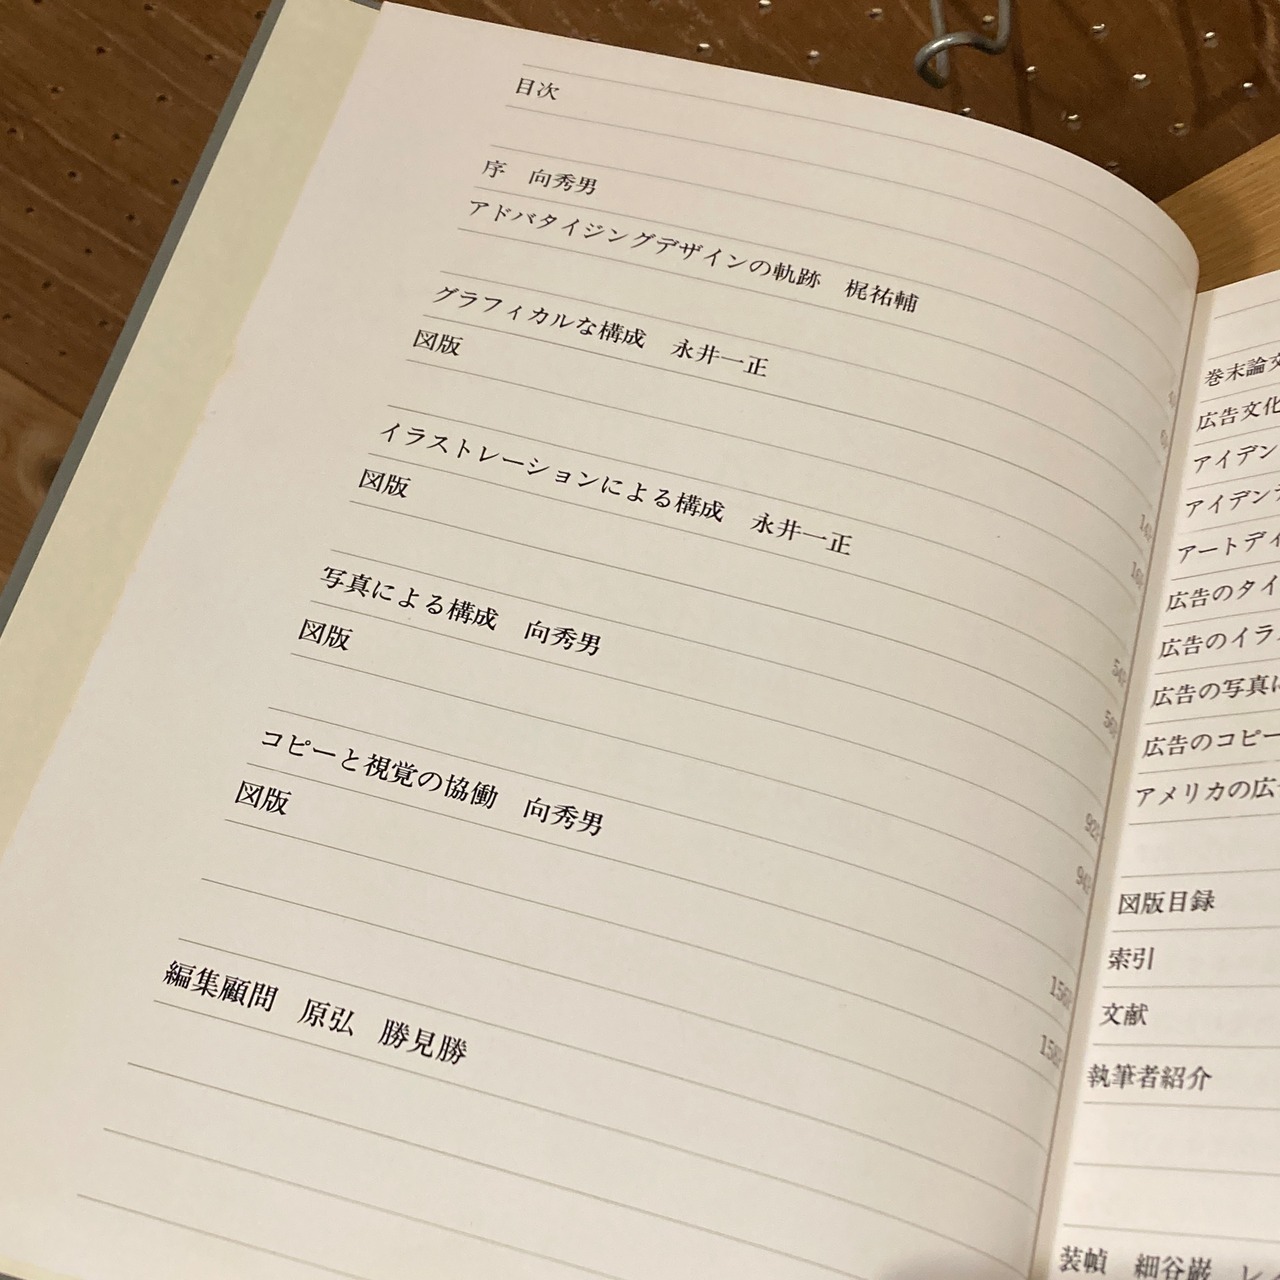 目次
序　向秀男
アドバタイジングデザインの軌跡　梶祐輔
グラフィカルな構成　永井一正
図版
イラストレーションによる構成　永井一正
図版
写真による構成　向秀男
図版
コピーと視覚の協働　向秀男
図版
編集顧問　原弘　勝見勝
14
16
54
56
92
94
156
158
巻末論文
広告文化
アイデン
アイデンテ
アートディ
広告のタイ
広告のイラ
広告の写真
広告のコピー
アメリカの広
図版目録
索引
文献
執筆者紹介
装幀　細谷巖　レイ